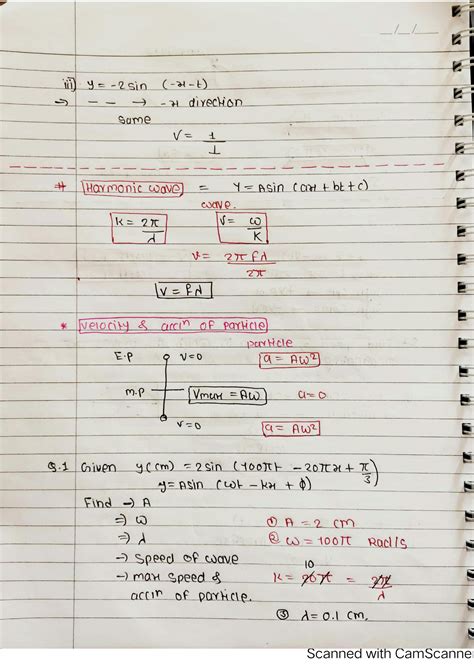 _/_/_
iii) y = -2sin (-x-t)
⇒ -- → -x direction
same
V = 1/1
# Harmonic wave = Y = Asin (ax + bt + c)
wave.
k = 2π/λ V = ω/K
V = 2πfλ/2π
V = fλ
* velocity & accn of particle
particle
E.P V=0 a = Aω²
m.p Vmax = Aω a=0
V=0 a = Aω²
Q.1 Given y(cm) = 2sin (100πt - 20πx + π/3)
y = Asin (ωt - kx + ϕ)
Find → A
⇒ ω ① A = 2 cm
⇒ λ ② ω = 100π Rad/s
→ speed of wave 10
→ max speed & K = 20π = 2π/λ
accn of particle.
③ λ = 0.1 cm.
Scanned with CamScanne